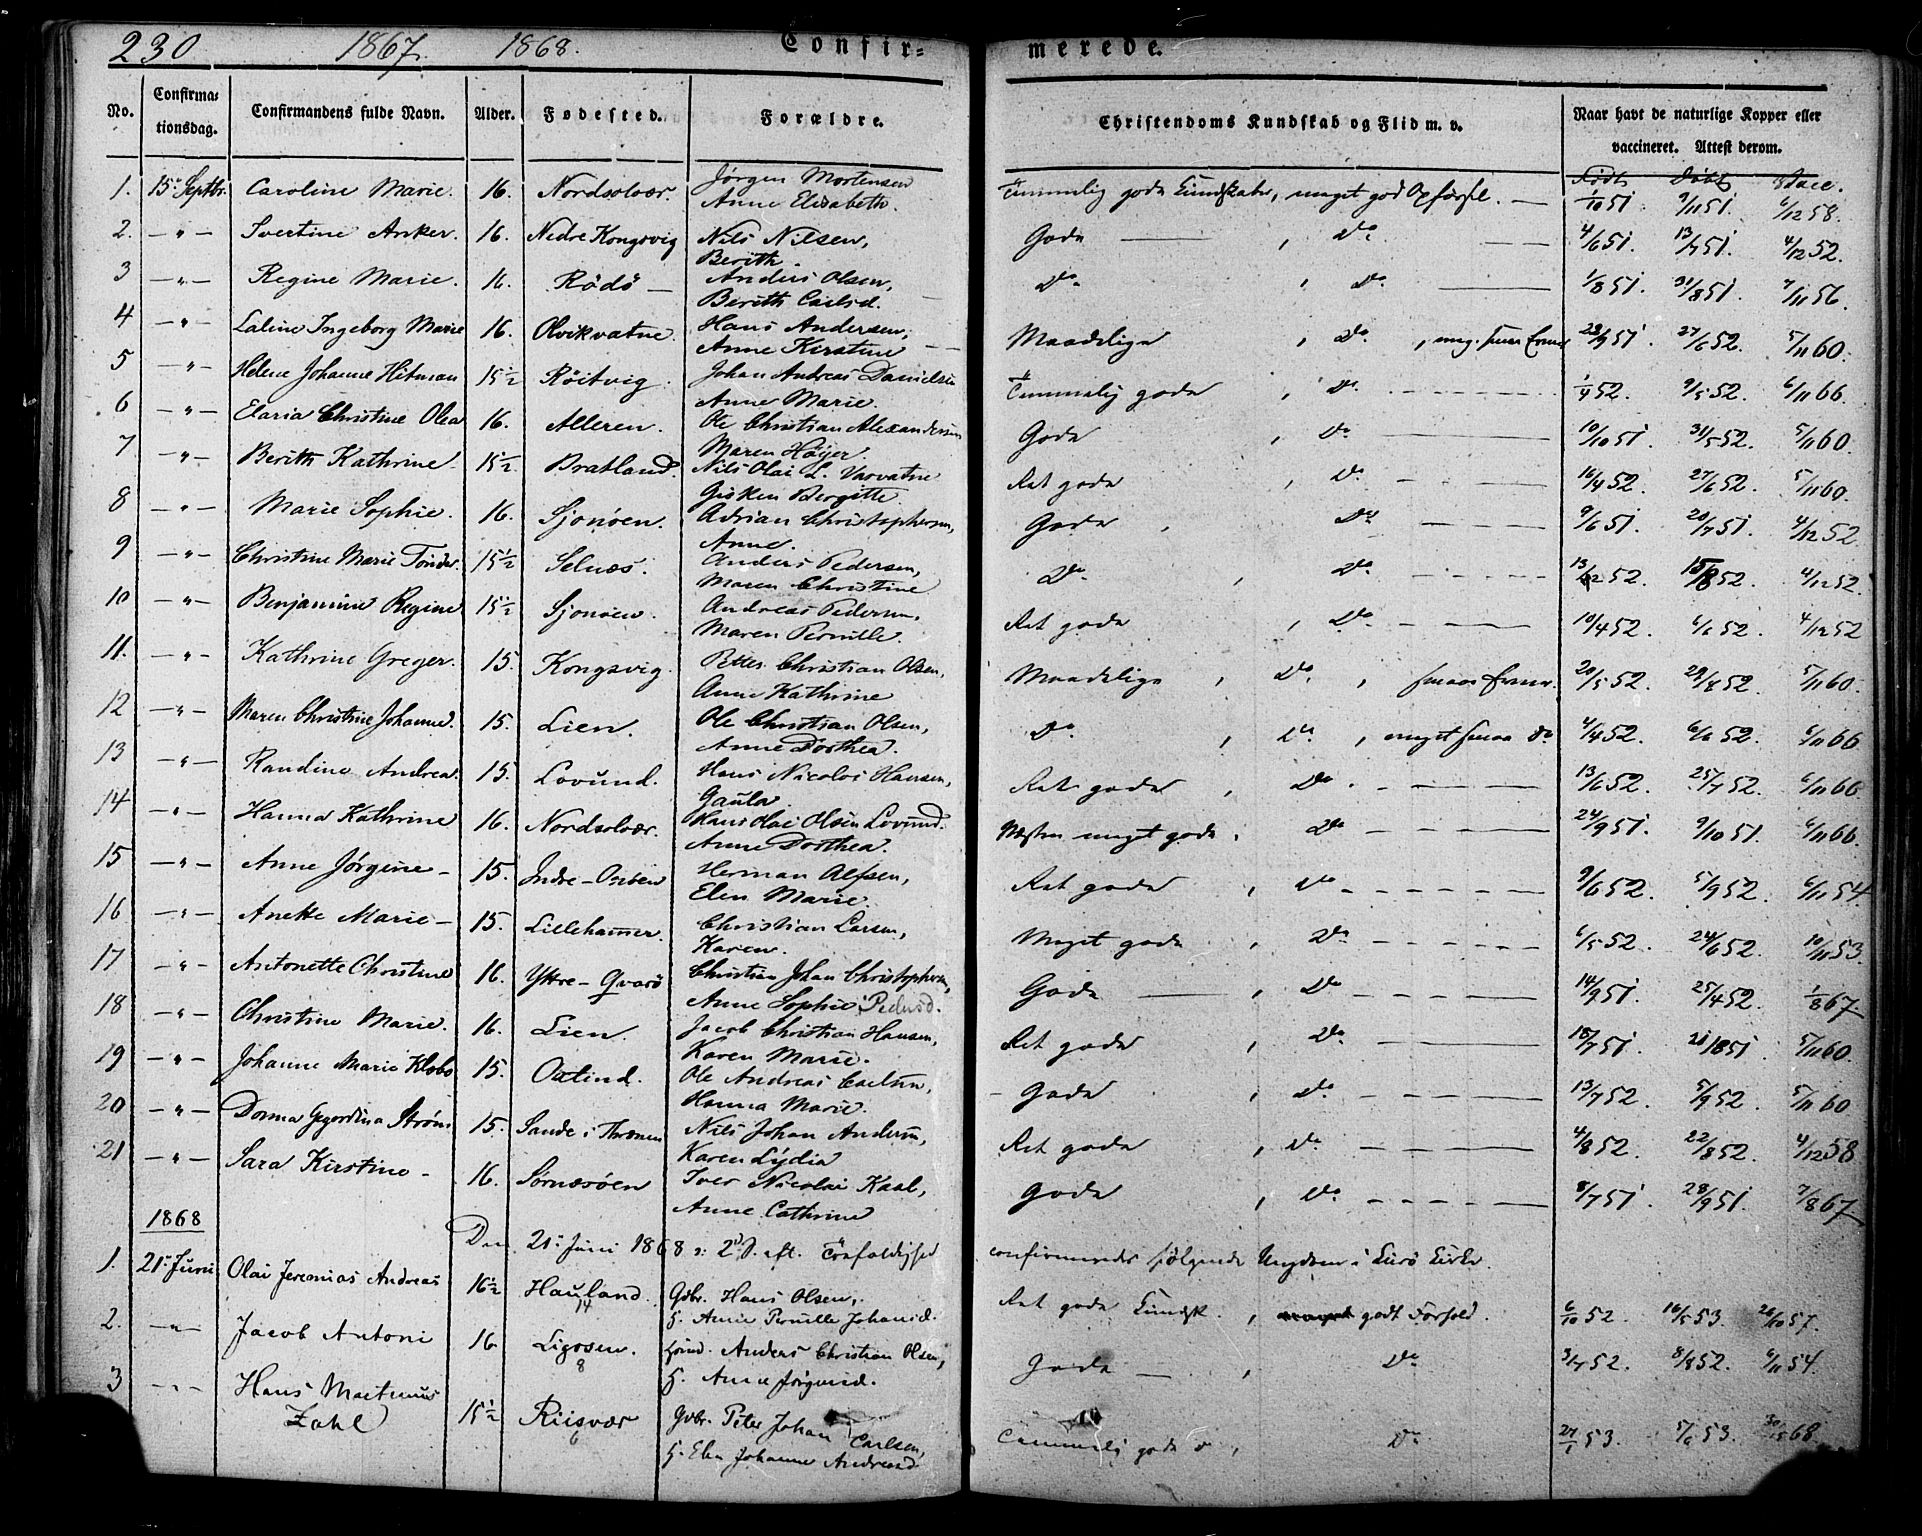 230 1867. 1868. Confir= merede.
No. Confirma= tionsdag. Confirmandens fulde Navn. Alder. Fødested. Forældre. Christendoms Kundskab og Flid m. v. Naar havt de naturlige Kopper eller vaccineret. Attest derom.
Født Døbt Vacc.
1. 15de Septbr. Caroline Marie. 16. Nordsolvær. Jørgen Mortensen Temmelig gode Kundskaber, meget god Opførsel. 1/10 51. 9/11 51. 6/12 58.
Anne Elisabeth.
2. —"— Svertine Anker. 16. Nedre Kongsvig Nils Nilsen, Gode —, Do. — 4/6 51. 13/7 51. 4/12 52.
Berith.
3 —"— Regine Marie. 16. Rödö — Anders Olsen, Do. , Do. — 1/8 51. 31/8 51. 7/11 56.
Berith Carlsd.
4 —"— Laline Ingeborg Marie 16. Olvikvatne. Hans Andersen, Maadelige , Do. , 28/9 51. 27/6 52. 5/11 60.
Anne Kirstine —
5 —"— Helene Johanne Hitman 15½ Røitvig. Johan Andreas Danielsen Temmelig gode , Do. — 1/4 52. 9/5 52. 6/11 66.
Anne Marie.
6 —"— Elaria Christine Olea 16. Alteren. Ole Christian Alexandersen Gode , Do. — 10/10 51. 31/5 52. 5/11 60.
Maren Høyer.
7 —"— Berith Kathrine. 15½ Bratland. Nils Olai L. Varvatne Ret gode , Do. — 16/4 52. 27/6 52. 5/11 60.
Gisken Bergitte
8 —"— Marie Sophie. 16. Sjonöen. Adrian Christophersen, Gode , Do. — 9/6 51. 20/7 51. 4/12 52.
Anne.
9 —"— Christine Marie Tönder. 15½ Selnæs. Anders Pedersen, Do. , Do. — 52. 15/8 52. 4/12 52.
Maren Christine
10 —"— Benjamine Regine 15½ Sjonöen. Andreas Pedersen, Ret gode , Do. — 10/4 52. 6/6 52. 4/12 52
Maren Pernille.
11. —"— Kathrine Greger. 15. Kongsvig. Petter Christian Olsen, Maadelige , Do. , smaa Evner. 20/5 52. 29/8 52. 5/11 60.
Anne Kathrine
12 —"— Maren Christine Johanne. 15. Lien. Ole Christian Olsen, Do. , Do. , meget smaa Do. 4/4 52. 6/6 52. 6/11 66
Anne Dorthea.
13 —"— Randine Andrea. 15. Lovund. Hans Nicolai Hansen, Ret gode , Do. — 13/6 52. 25/7 52. 6/11 66
Gaula.
14 —"— Hanna Kathrine 16. Nordsolvær. Hans Olai Olsen Lovund. Næsten meget gode , Do — 24/9 51. 9/10 51. 6/11 66.
Anne Dorthea.
15 —"— Anne Jörgine — 15. Indre-Onöen Herman Alfsen, Ret gode , Do — 9/6 52. 5/9 52. 6/11 54
Elen Marie.
16 —"— Anette Marie — 15. Lillehammer. Christian Larsen, Meget gode , Do — 6/5 52. 24/6 52. 10/11 53.
Karen.
17 —"— Antonette Christine 16. Yttre-Qvarö Christian Johan Christophersen, Gode — , Do — 14/9 51. 25/4 52. 1/8 67
Anne Sophie Pedersd.
18 —"— Christine Marie. 16. Lien. Jacob Christian Hansen, Ret gode , Do. — 18/7 51. 51. 5/11 60.
Karen Marie.
19 —"— Johanne Marie Klebo 15. Oxtind. Ole Andreas Carlsen, Gode , Do. — 13/7 52. 5/9 52. 5/11 60
Hanna Marie.
20 —"— Dorma Gegordina Ström 15. Sande i Thrænen Nils Johan Andersen, Ret gode , Do. — 4/8 52. 22/8 52. 4/12 58
Karen Lydia
21 —"— Sara Kirstine — 16. Sørnæsöen Iver Nicolai Kaal, Gode , Do. — 8/7 51. 28/9 51. 7/8 67
Anne Cathrine
1868
Den 21de Juni 1868 2 S. eft. Trefoldighed confirmeredes følgende Ungdom i Lurö Kirke.
1. 21de Juni Olai Jeremias Andreas 16½ Hauland. 14 Gdbr. Hans Olsen, Ret gode Kundsk. , godt Forhold. 6/10 52. 16/5 53. 26/10 57.
H. Anne Pernille Johansd.
2. —"— Jacob Antoni 16 Ligosen. 8 Anders Christian Olsen, Gode — , Do 3/7 52. 8/8 52. 6/11 54.
H. Anne Jørgensd.
3 —"— Hans Martinus Zahl 15½ Riisvær 6 Gdbr. Peter Johan Carlsen, Temmelig gode Do , Do 53. 5/6 53. 68
H. Elen Johanne Andreasd.